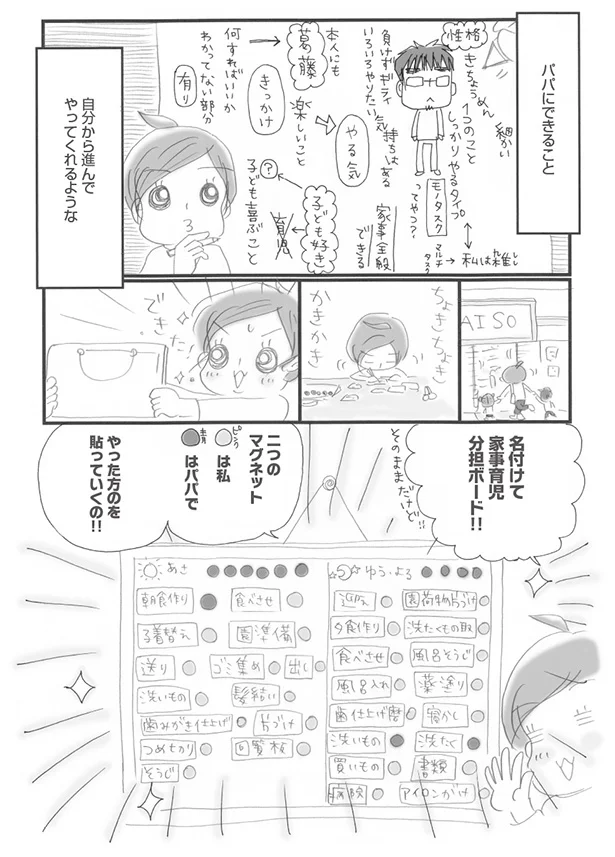 パパにできること
自分から進んで
やってくれるような
性格
きちょうめん
細かい
1つのこと
しっかりやるタイプ
モノタスク
ってやつ?
マルチ
タスク
私は雑し
負けずギライ
いろいろやりたい
気持ちはある
家事全般
できる
やる気
子ども好き
育児
?
子ども喜ぶこと
楽しいこと
きっかけ
葛藤
本人にも
何すればいいか
わかってない部分
有り
AISO
ちょきちょき
かきかき
できた!
名付けて
家事育児
分担ボード!!
そのままだけど!!
二つの
マグネット
ピンク
は私
青
はパパで
やった方のを
貼っていくの!!
あさ
朝食作り
食べさせ
子着替え
園準備
送り
ゴミ集め
出し
洗いもの
髪結い
歯みがき仕上げ
片づけ
つめきり
回覧板
そうじ
ゆう・よる
迎え
園荷物片づけ
夕食作り
洗たくもの取
食べさせ
風呂そうじ
風呂入れ
薬塗り
歯仕上げ磨
寝かし
洗いもの
洗たく
買いもの
書類
病院
アイロンがけ